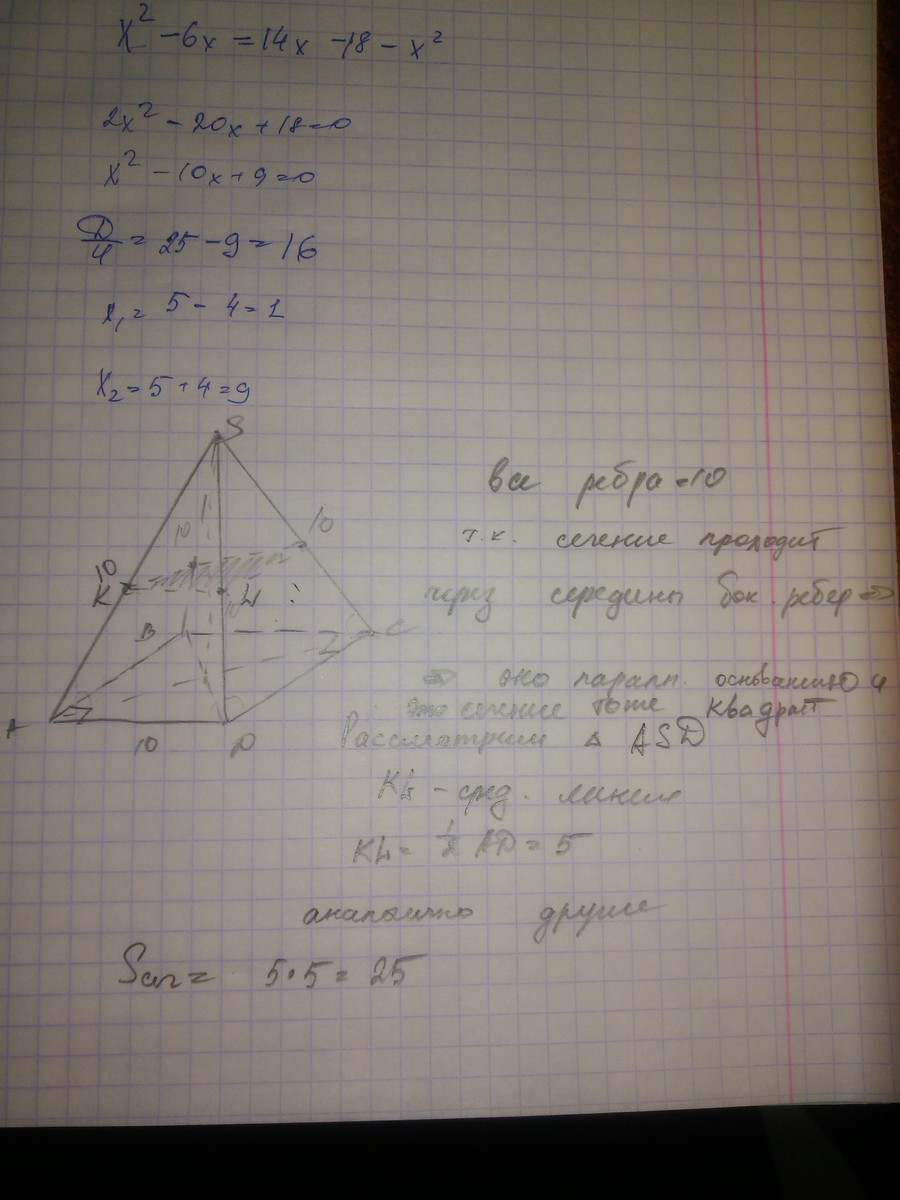 x² - 6x = 14x - 18 - x²
2x² - 20x + 18 = 0
x² - 10x + 9 = 0
D/4 = 25 - 9 = 16
x₁ = 5 - 4 = 1
x₂ = 5 + 4 = 9
S
10
10
10
K
L
10
B
C
A
10
D
все ребра = 10
т.к. сечение проходит
через середины бок. ребер ⇒
⇒ оно паралл. основанию и
это сечение тоже квадрат
Рассмотрим △ ASD
KL - сред. линия
KL = 1/2 AD = 5
аналогично другие
Sсеч = 5·5 = 25